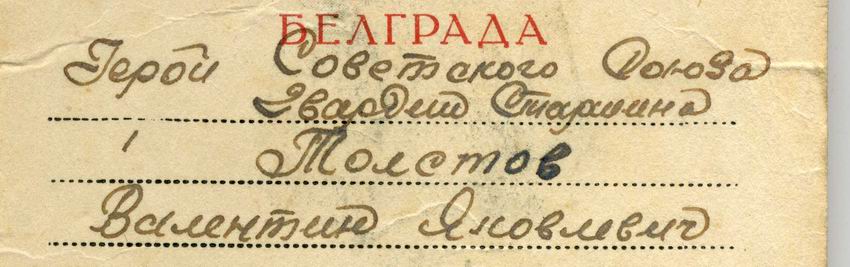 БЕЛГРАДА
Герой Советского Союза
Гвардии Старшина
Толстов
Валентин Яковлевич